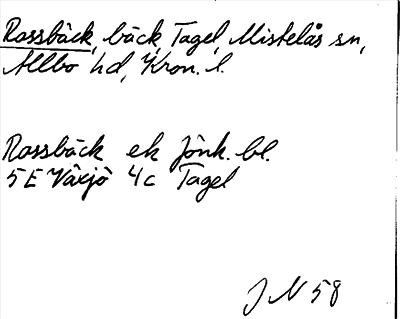 Rossbäck, bäck, Tagel, Mistelås sn,
Allbo hd, Kron. l.
Rossbäck ek Jönk. bl.
5 E Växjö 4c Tagel
J N 58